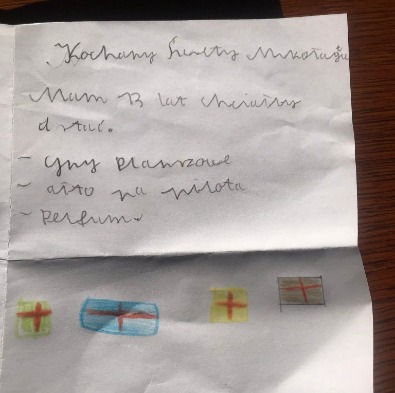 Kochany Święty Mikołaju
Mam 13 lat chciałbym
dstać.
- Gry planszowe
- aito na pilota
- Perfum.